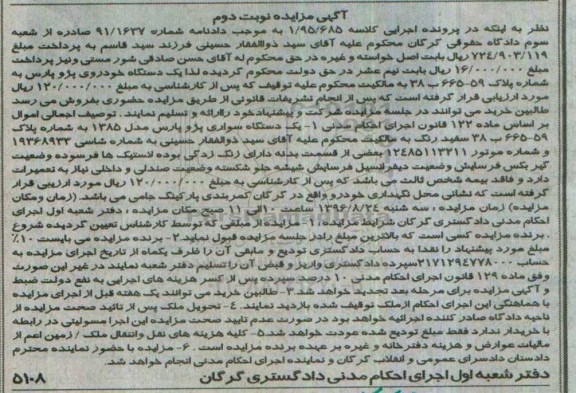 آگهی مزایده نوبت دوم
نظر به اینکه در پرونده اجرایی کلاسه 1/95/685 به موجب دادنامه شماره 91/1637 صادره از شعبه
سوم دادگاه حقوقی گرگان محکوم علیه آقای سید ذوالفقار حسینی فرزند سید قاسم به پرداخت مبلغ
724/903/119 ریال بابت اصل خواسته و غیره در حق محکوم له آقای حسن صادقی شور مستی ونیز پرداخت
مبلغ 16/000/000 ریال بابت نیم عشر در حق دولت محکوم گردیده لذا یک دستگاه خودروی پژو پارس به
شماره پلاک 59-665 ب 38 به مالکیت محکوم علیه توقیف که پس از کارشناسی به مبلغ 120/000/000 ریال
مورد ارزیابی قرار گرفته است که پس از انجام تشریفات قانونی از طریق مزایده حضوری بفروش می رسد
طالبین خرید می توانند در جلسه مزایده شرکت و پیشنهاد خود راارائه و تسلیم نمایند. توصیف اجمالی اموال
بر اساس ماده 122 قانون اجرای احکام مدنی 1- یک دستگاه سواری پژو پارس مدل 1385 به شماره پلاک
59-665 ب 38 سفید رنگ به مالکیت محکوم علیه آقای سید ذوالفقار حسینی به شماره شاسی 19368933
و شماره موتور 12485113211 بعضی از قسمت بدنه دارای زنگ زدگی بوده لاستیک ها فرسوده وضعیت
گیر بکس فرسایش وضعیت دیفرانسیل فرسایش شیشه جلو شکسته وضعیت صندلی و داخلی نیاز به تعمیرات
دارد و فاقد بیمه شخص ثالث می باشد که پس از کارشناسی به مبلغ 120/000/000 ریال مورد ارزیبی قرار
گرفته است که نشانی محل نگهداری خودرو واقع در گرگان کمربندی پارکینگ جامی می باشد. (زمان ومکان
مزایده) زمان مزایده : سه شنبه 1396/8/24 ساعت 10 الی 11 صبح مکان مزایده : دفتر شعبه اول اجرای
احکام مدنی دادگستری گرگان شرایط مزایده: 1- مزایده از مبلغی که توسط کارشناس تعیین گردیده شروع
. برنده مزایده کسی است که بالاترین مبلغ رادر جلسه مزایده قبول نماید 2- برنده مزایده می بایست 10٪
مبلغ مورد پیشنهاد را نقدا به حساب دادگستری تودیع و مابقی آن را ظرف یکماه از تاریخ مزایده به
حساب 2171294778000 سپرده دادگستری واریز و قبض آن را تسلیم دفتر شعبه نمایند در غیر این صورت
وفق ماده 129 قانون اجرای احکام مدنی 10 درصد سپرده پس از کسر هزینه های اجرایی به نفع دولت ضبط
و آگهی مزایده برای مرحله بعد تجدید خواهد شد. 3- طالبین خرید می توانند یک هفته قبل از اجرای مزایده
با هماهنگی این اجرای احکام ازملک توقیف شده بازدید نمایند. 4- تحویل ملک پس از تائید صحت مزایده از
ناحیه دادگاه صادر کننده اجرائیه خواهد بود در صورت عدم تایید صحت مزایده این اجرا مسولیتی در رابطه
با خریدار ندارد فقط مبلغ تودیع شده عودت خواهد شد. 5- کلیه هزینه های نقل وانتقال ملک / زمین اعم از
مالیات عوارض و هزینه دفترخانه و غیره بر عهده برنده مزایده است . 6- مزایده با حضور نماینده محترم
دادستان دادسرای عمومی و انقلاب گرگان و نماینده اجرای احکام مدنی انجام خواهد شد.
دفتر شعبه اول اجرای احکام مدنی دادگستری گرگان 5108